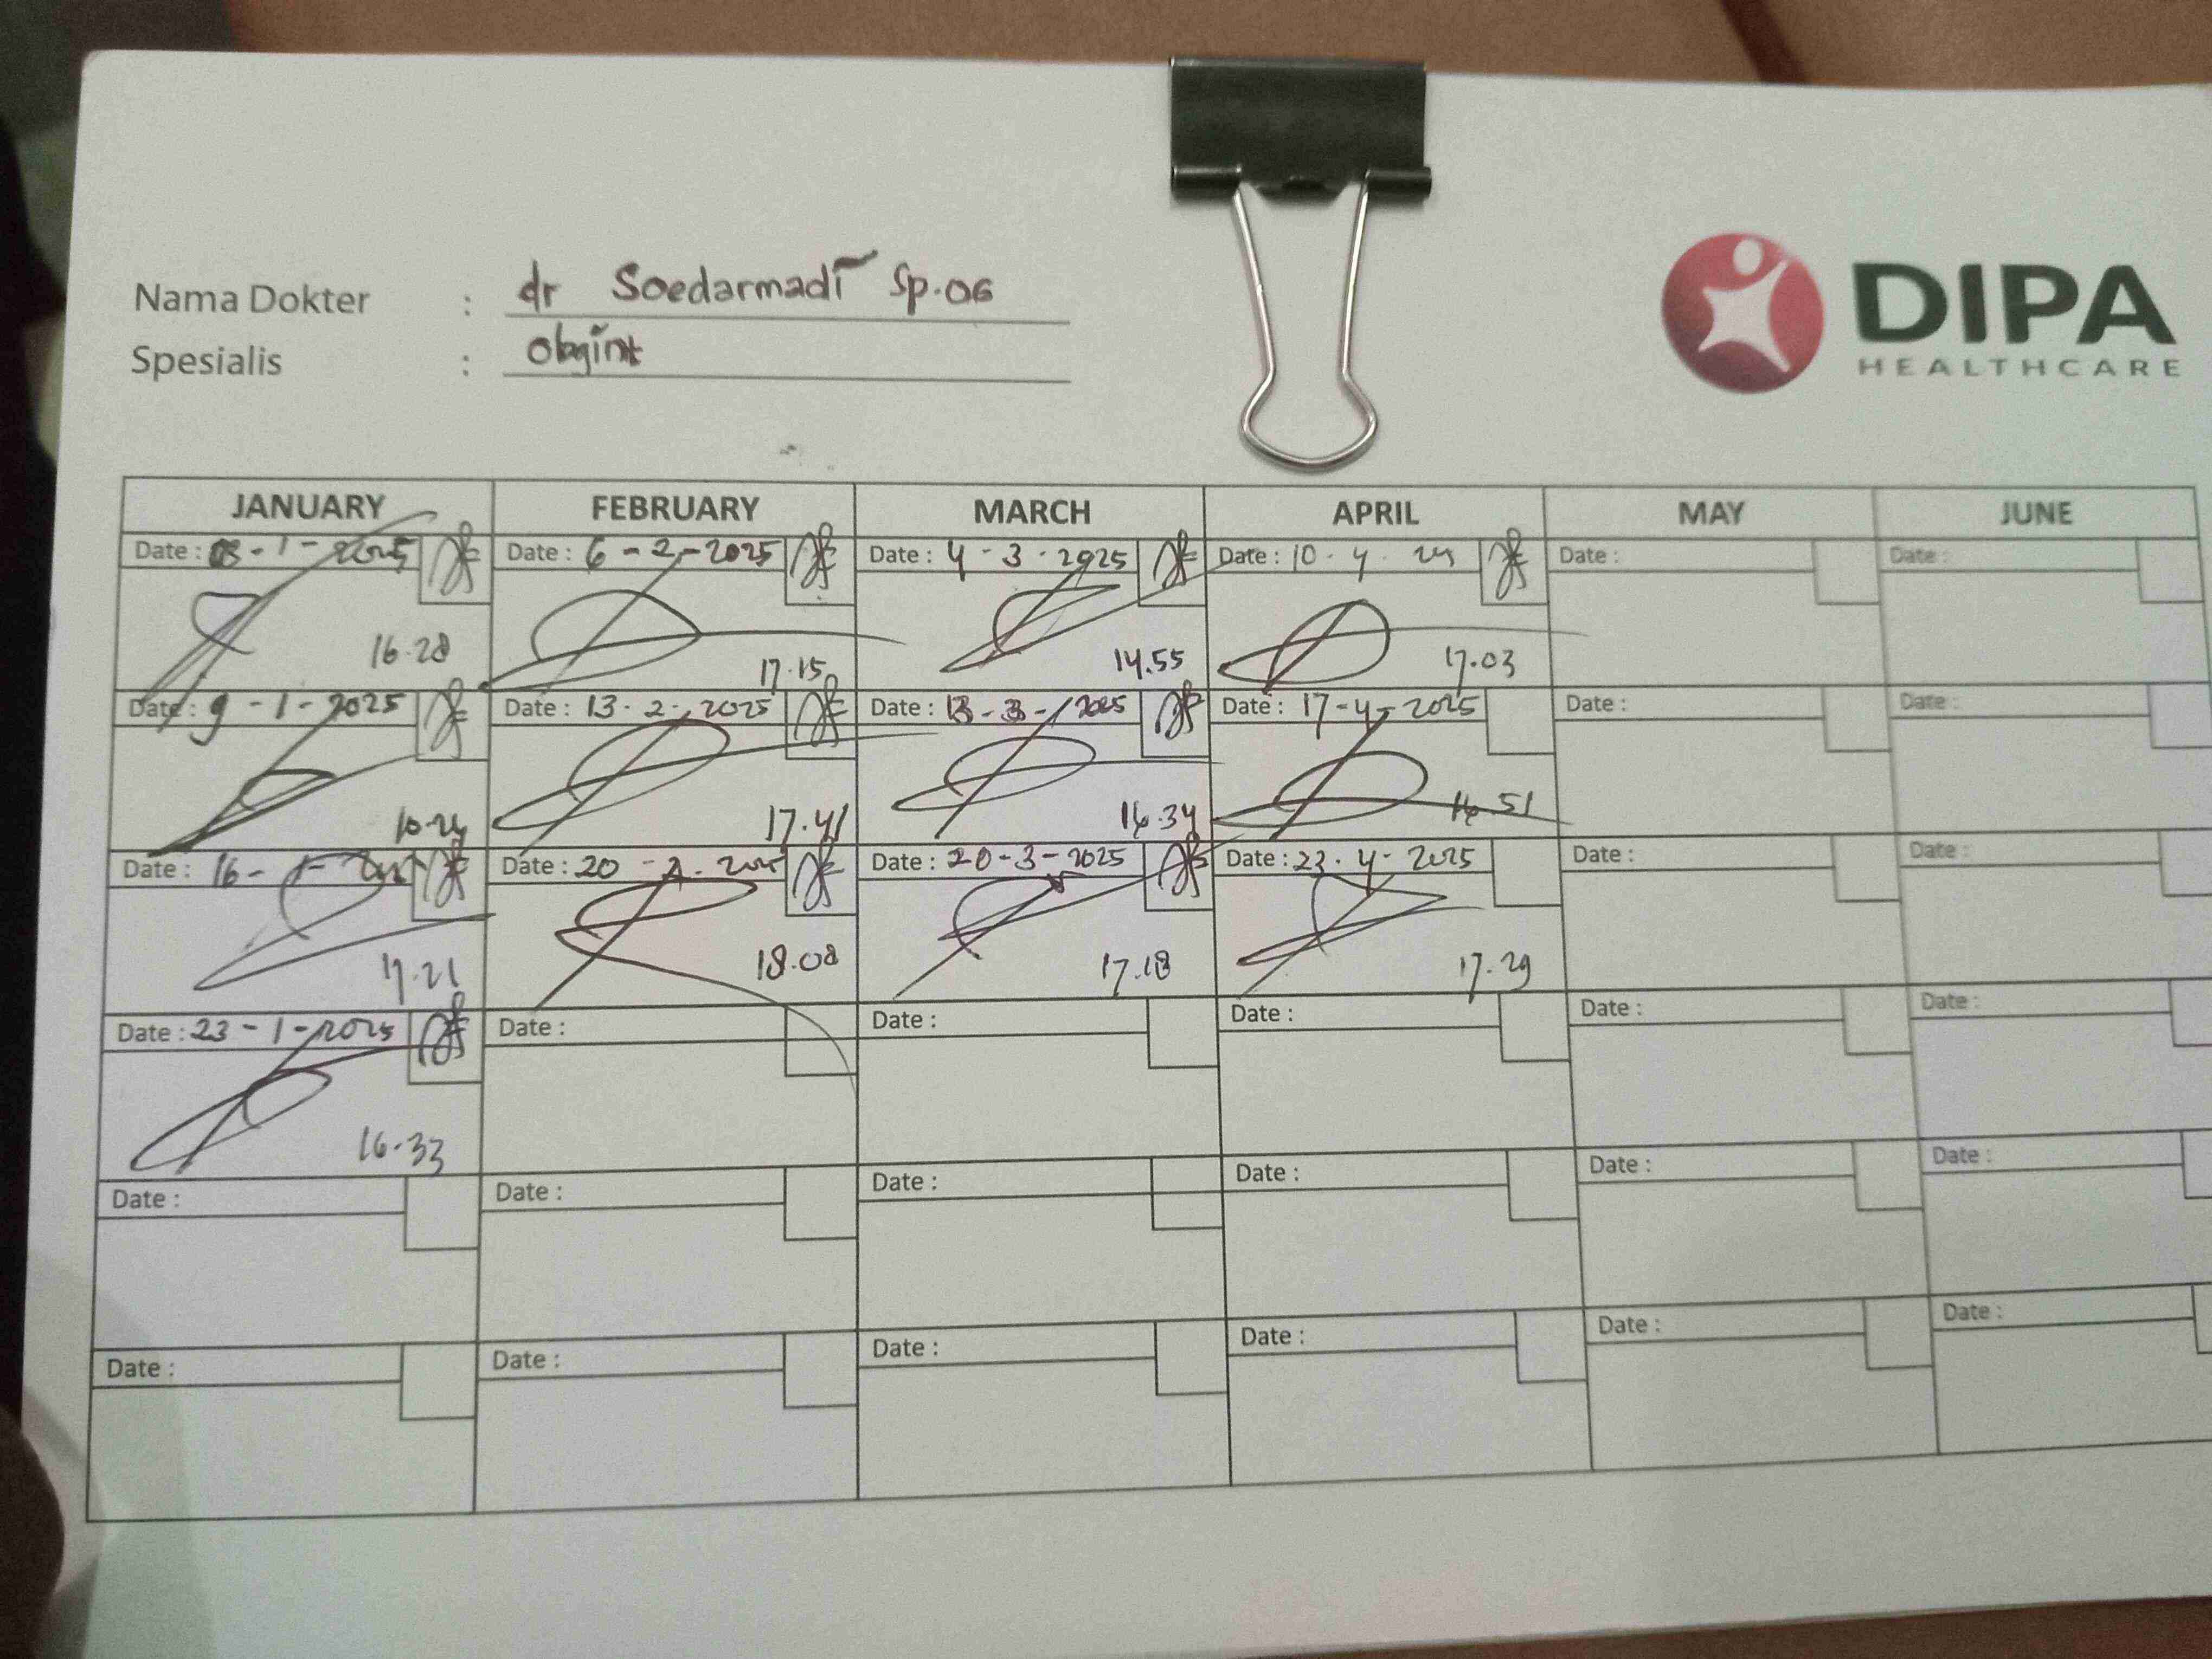 Nama Dokter : dr Soedarmadi Sp.OG
Spesialis :
DIPA
HEALTHCARE
JANUARY FEBRUARY MARCH APRIL MAY JUNE
Date : 03 - 1 - 2025 Date : 6 - 2 - 2025 Date : 4 - 3 - 2025 Date : 10 - 4 - Date : Date :
16.28 17.15 14.55 17.03
Date : 9 - 1 - 2025 Date : 13 - 2 - 2025 Date : 13 - 3 - 2025 Date : 17 - 4 - 2025 Date : Date :
17.41 16.34 16.51
Date : 16 - 1 - Date : 20 - 2 - 2025 Date : 20 - 3 - 2025 Date : 23 - 4 - 2025 Date : Date :
17.21 18.08 17.18 17.29
Date : 23 - 1 - 2025 Date : Date : Date : Date : Date :
16.33
Date : Date : Date : Date : Date : Date :
Date : Date : Date : Date : Date : Date :